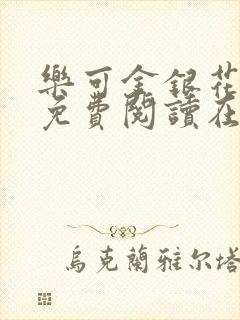 樂可金銀花
免費閱讀在
烏克蘭雅尔塔